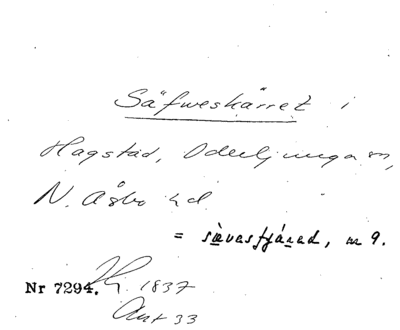 Säfweskärret i
Hagstad, Oderljunga sn,
N. Åsbo hd
= sävasfjárad, m 9.
Nr 7294. 1837
Ant 33